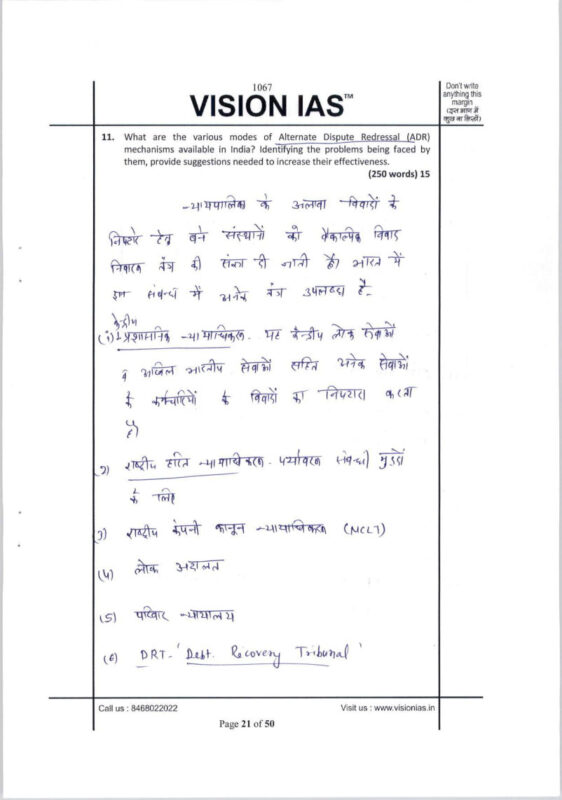 1067
VISION IAS™
Don't write
anything this
margin
(इस भाग में
कुछ ना लिखें)
11. What are the various modes of Alternate Dispute Redressal (ADR)
mechanisms available in India? Identifying the problems being faced by
them, provide suggestions needed to increase their effectiveness.
(250 words) 15
न्यायपालिका के अलावा विवादों के
निपटारे हेतु बने संस्थानों को वैकल्पिक विवाद
निवारक तंत्र की संज्ञा दी जाती है। भारत में
इस संबन्ध में अनेक तंत्र उपलब्ध है-
केन्द्रीय
(1) प्रशासनिक न्यायाधिकरण- यह केन्द्रीय लोक सेवाओं
व अखिल भारतीय सेवाओं सहित अनेक सेवाओं
के कर्मचारियों के विवादों का निपटारा करता
है।
2) राष्ट्रीय हरित न्यायाधिकरण- पर्यावरण संबन्धी मुद्दों
के लिए
3) राष्ट्रीय कंपनी कानून न्यायाधिकरण (NCLT)
(4) लोक अदालत
(5) परिवार न्यायालय
(6) DRT- 'Debt. Recovery Tribunal'
Call us : 8468022022
Visit us : www.visionias.in
Page 21 of 50